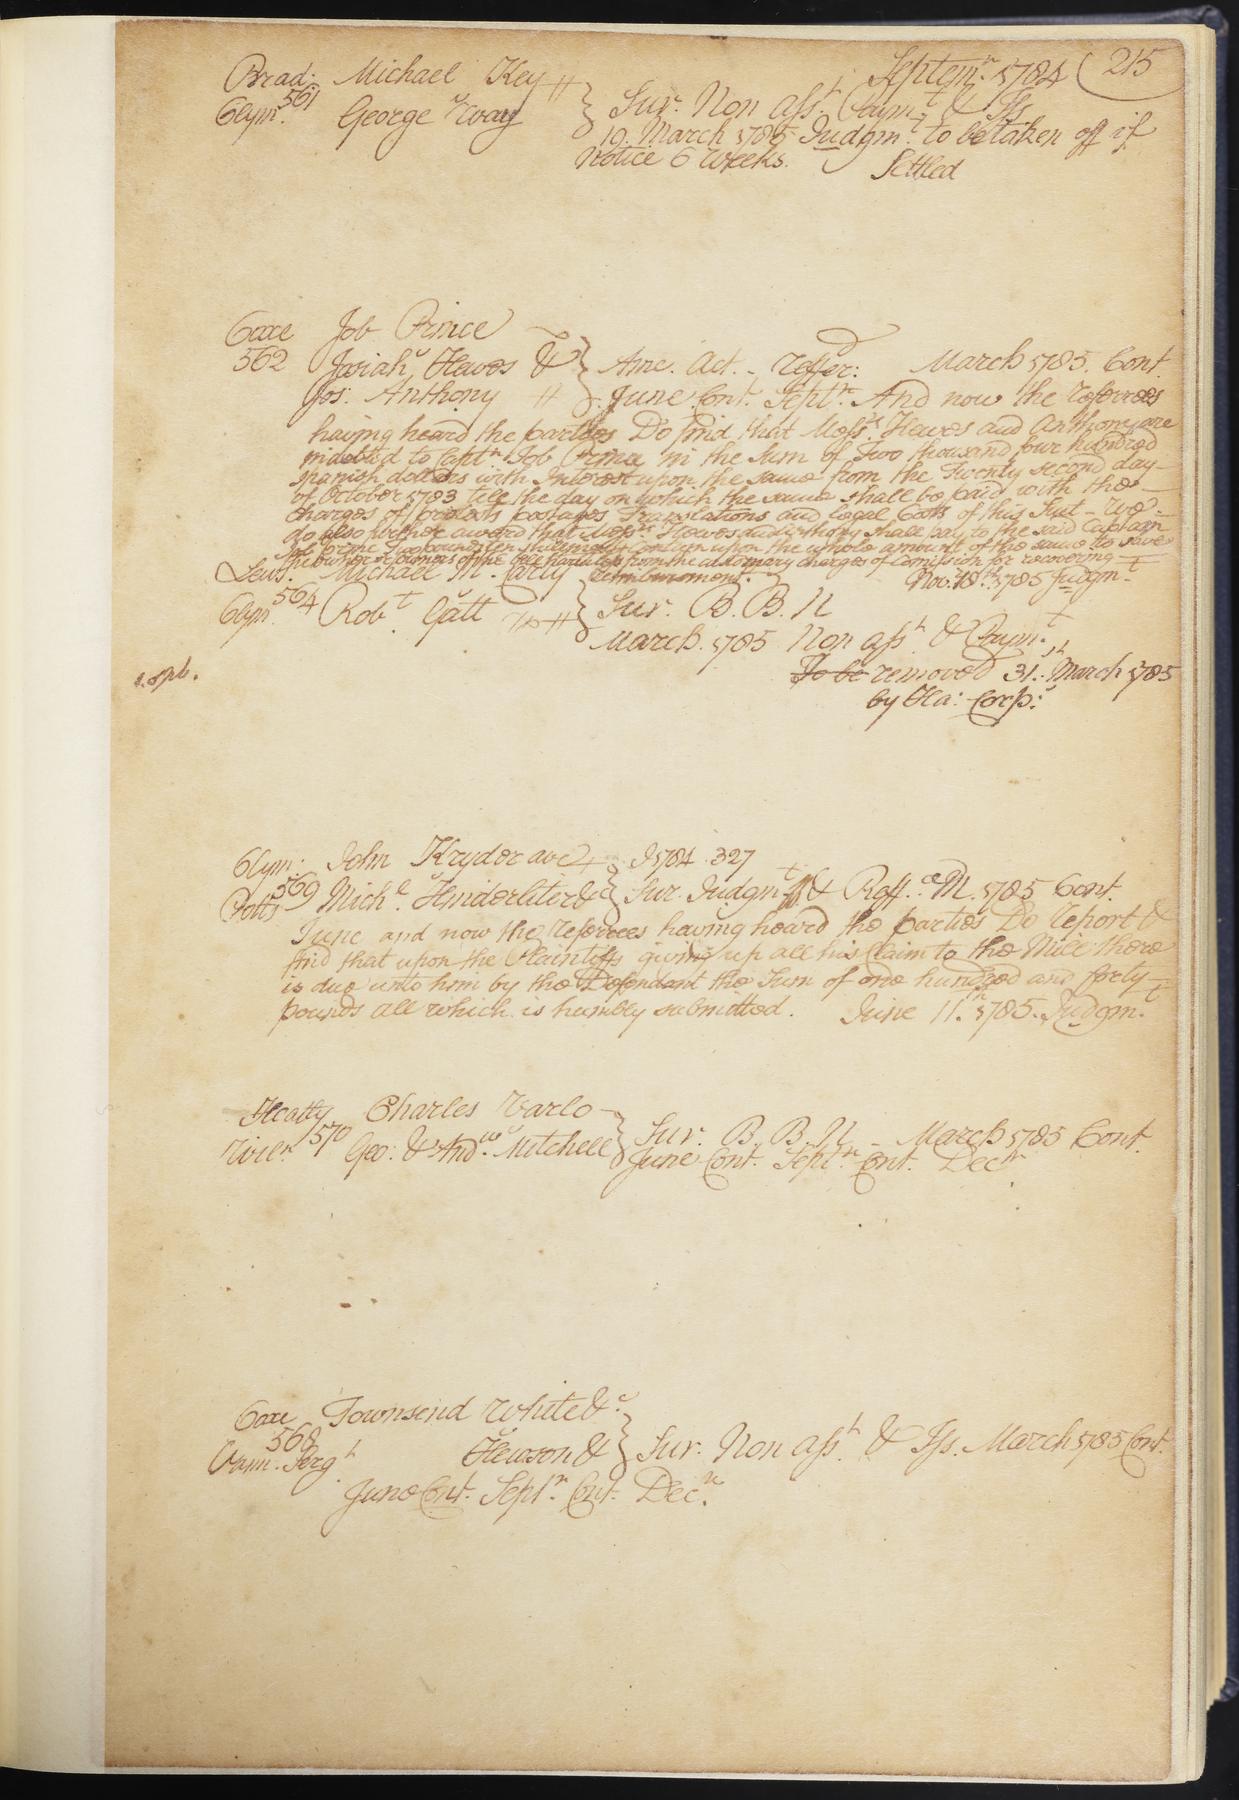 Septem.r 1784 (215
Brad: Michael Key
561
Clym.r George Way } Sur. Non ass.t Paym.t & Iss.
19. March 1785 Judgm.t to be taken off if
Notice 6 Weeks. Settled
Coxe Job Prince
562 Josiah Hewes & } Ame. Act. - Reffer: March 1785. Cont.
Jos: Anthony June Cont. Sept.r And now the referrees
having heard the parties Do find that Mess.rs Hewes and Anthony are
indebted to Capt.n Job Prince in the Sum of Two thousand four hundred
Spanish dollars with Interest upon the same from the Twenty second day
of October 1783 till the day on which the same shall be paid with the
charges of protests postages Translations and legal Costs of this Suit - We
do also further award that Mess.rs Hewes and Anthony shall pay to the said Captain
Job Prince Two pounds ten shillings upon the whole amount of the same to save
the owner or owners of the from the customary charges of Comission for recovering
Lewis. Michael M. Carty reimbursement. Nov. 18.th 1785 Judgm.t
564
Clym.r Rob.t Gatt } Sur. B. B. N
March. 1785 Non ass.t & Paym.t
To be removed 31.st March 1785
by Ha: Corp:s
Clym: John Kryder } J 1784. 327
569
Potts Mich.l Hinderliter & } Sur. Judgm.t & Reff. M. 1785 Cont.
June and now the Referrees having heard the parties Do report &
find that upon the Plaintiffs giving up all his Claim to the Mill there
is due unto him by the Defendant the Sum of one hundred and forty
pounds all which is humbly submitted. June 11.th 1785. Judgm.t
Heatly Charles Varlo
570
Geo: & And.w Mitchell } Sur. B. B. N - March 1785 Cont.
June Cont. Sept.r Cont. Dec.r
Coxe Townsend White &
568
Serg.t Hewson & } Sur. Non ass.t & Iss. March 1785 Cont.
June Cont. Sept.r Cont. Dec.r